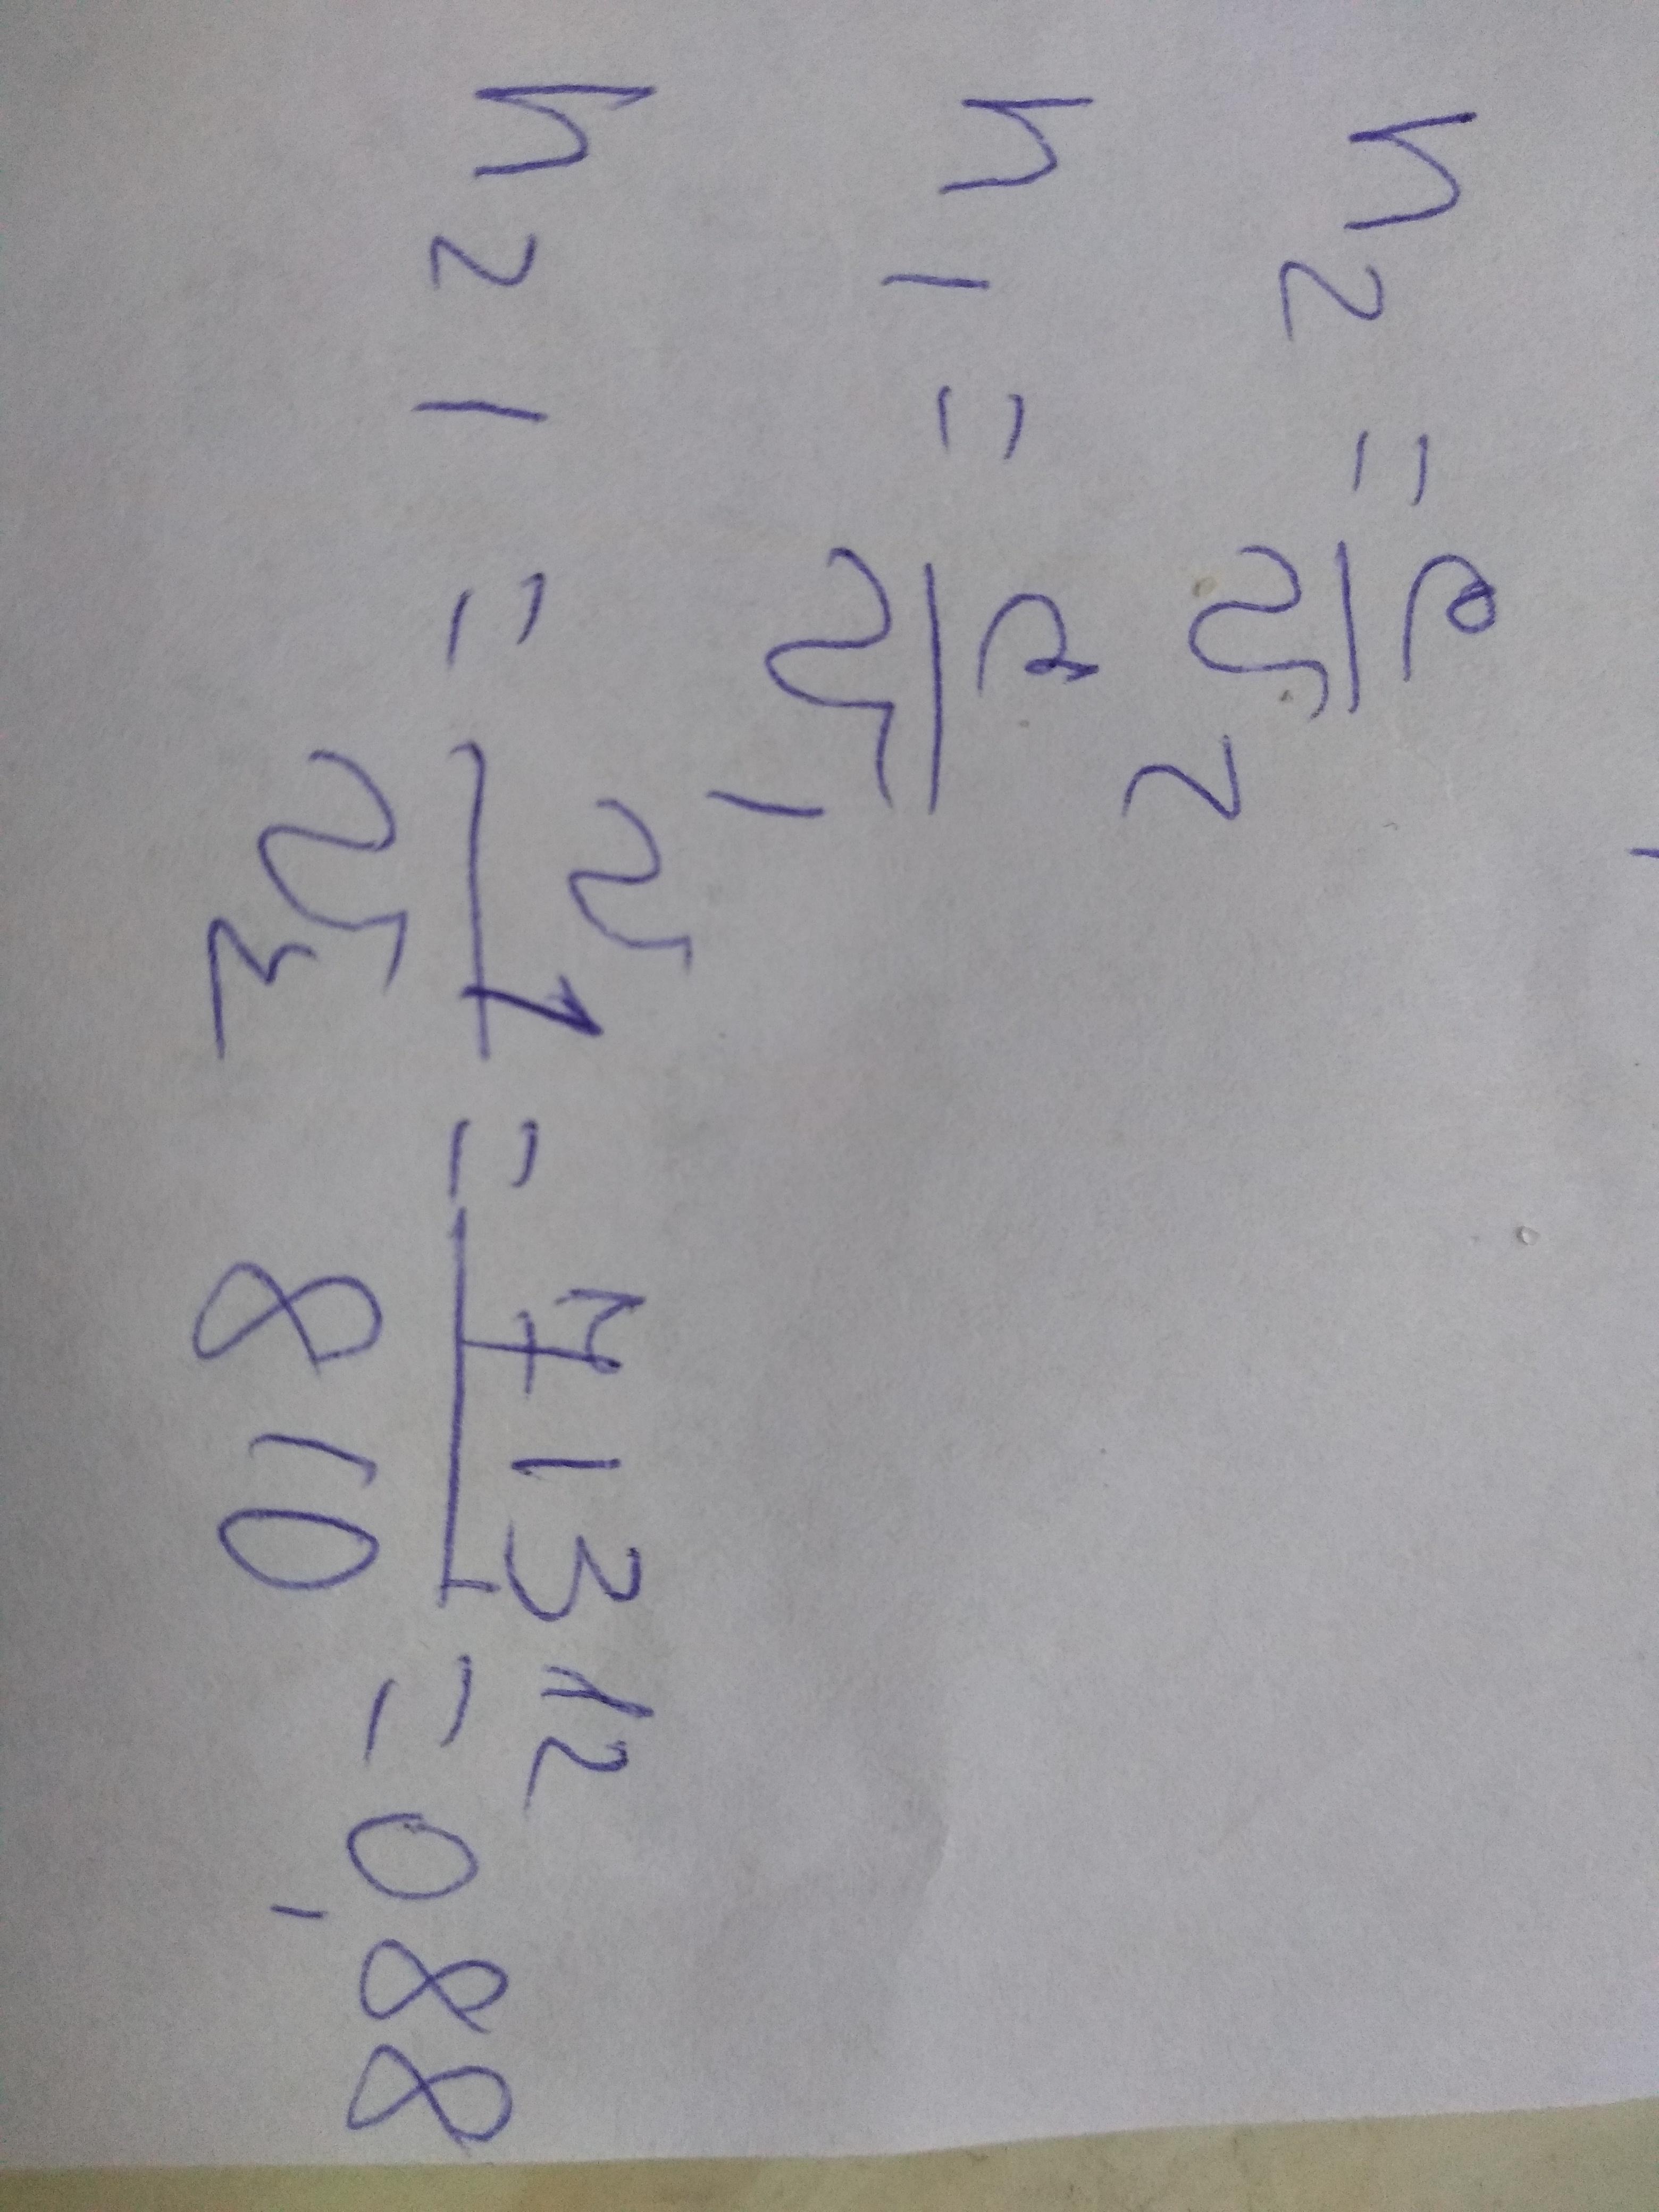 n2 = c/v2
n1 = c/v1
n21 = = 713/810 = 0,88